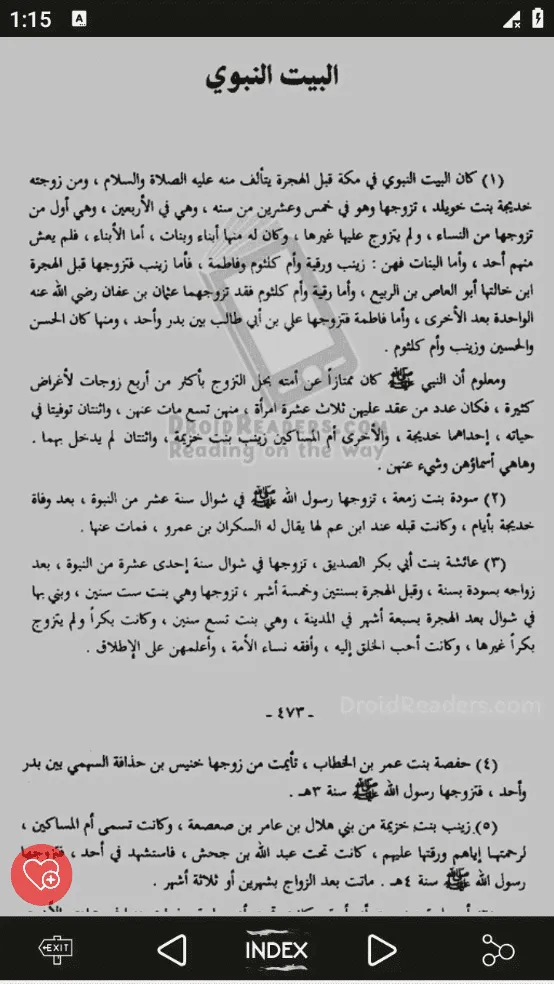 1:15
A
البيت النبوي
(١) كان البيت النبوي في مكة قبل الهجرة يتألف منه عليه الصلاة والسلام ، ومن زوجته
خديجة بنت خويلد ، تزوجها وهو في خمس وعشرين من سنه ، وهي في الأربعين ، وهي أول من
تزوجها من النساء ، ولم يتزوج عليها غيرها ، وكان له منها أبناء وبنات ، أما الأبناء ، فلم يعش
منهم أحد ، وأما البنات فهن : زينب ورقية وأم كلثوم وفاطمة ، فأما زينب فتزوجها قبل الهجرة
ابن خالتها أبو العاص بن الربيع ، وأما رقية وأم كلثوم فقد تزوجهما عثمان بن عفان رضي الله عنه
الواحدة بعد الأخرى ، وأما فاطمة فتزوجها علي بن أبي طالب بين بدر وأحد ، ومنها كان الحسن
والحسين وزينب وأم كلثوم .
ومعلوم أن النبي ﷺ كان ممتازاً عن أمته بحل التزوج بأكثر من أربع زوجات لأغراض
كثيرة ، فكان عدد من عقد عليهن ثلاث عشرة امرأة ، منهن تسع مات عنهن ، واثنتان توفيتا في
DroidReaders.com
حياته ، إحداهما خديجة ، والأخرى أم المساكين زينب بنت خزيمة ، واثنتان لم يدخل بهما .
Reading on the way
وهاهي أسماؤهن وشيء عنهن .
(٢) سودة بنت زمعة ، تزوجها رسول الله ﷺ في شوال سنة عشر من النبوة ، بعد وفاة
خديجة بأيام ، وكانت قبله عند ابن عم لها يقال له السكران بن عمرو ، فمات عنها .
(٣) عائشة بنت أبي بكر الصديق ، تزوجها في شوال سنة إحدى عشرة من النبوة ، بعد
زواجه بسودة بسنة ، وقبل الهجرة بسنتين وخمسة أشهر ، تزوجها وهي بنت ست سنين ، وبني بها
في شوال بعد الهجرة بسبعة أشهر في المدينة ، وهي بنت تسع سنين ، وكانت بكراً ولم يتزوج
بكراً غيرها ، وكانت أحب الخلق إليه ، وأفقه نساء الأمة ، وأعلمهن على الإطلاق .
DroidReaders.com
- ٤٧٣ -
(٤) حفصة بنت عمر بن الخطاب ، تأيمت من زوجها خنيس بن حذافة السهمي بين بدر
وأحد ، فتزوجها رسول الله ﷺ سنة ٣هـ .
(٥) زينب بنت خزيمة من بني هلال بن عامر بن صعصعة ، وكانت تسمى أم المساكين ،
لرحمتها إياهم ورقتها عليهم ، كانت تحت عبد الله بن جحش ، فاستشهد في أحد ، فتزوجها
رسول الله ﷺ سنة ٤هـ . ماتت بعد الزواج بشهرين أو ثلاثة أشهر .
EXIT
INDEX